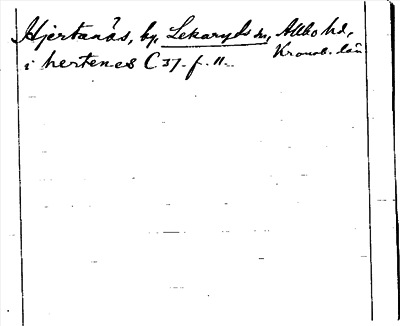 Hjertanås, by, Lekaryds sn, Allbo hd,
Kronob. län
i hertenes C 37. f. 11.